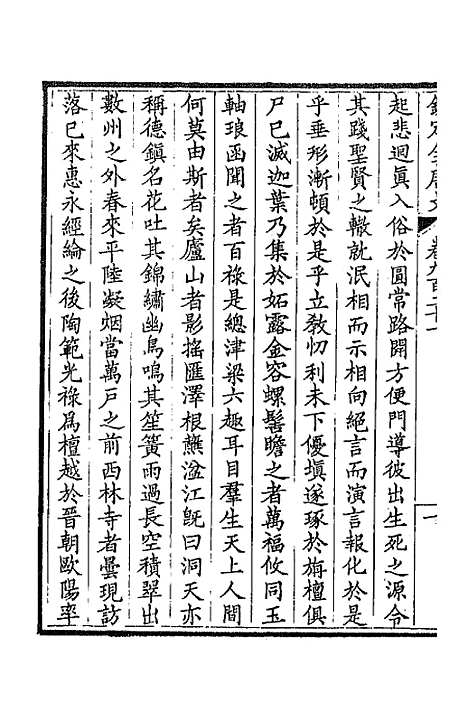 起悲迴眞入俗於圓常路開方便門導彼出生死之源令
其踐聖賢之轍就泯相而示相向絕言而演言報化於是
乎垂形漸頓於是乎立敎忉利未下優塡遂琢於旃檀俱
尸已滅迦葉乃集於妬露金容螺髻瞻之者萬福攸同玉
軸琅函聞之者百祿是總津梁六趣耳目羣生天上人間
何莫由斯者矣廬山者影搖匯澤根蘸湓江旣曰洞天亦
稱德鎭名花吐其錦繡幽鳥鳴其笙簧雨過長空積翠出
數州之外春來平陸凝烟當萬戶之前西林寺者曇現訪
落已來惠永經綸之後陶範光祿爲檀越於晉朝歐陽率